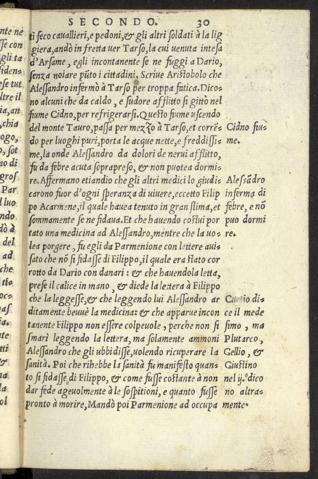 SECONDO. 30
ti seco cauallieri, e pedoni, & gli altri soldati à la lig
giera, andò in fretta uer Tarso, la cui uenuta intesa
d'Arsame, egli incontanente se ne fuggì a Dario,
senza uolare pūto i cittadini. Scriue Aristobolo che
Alessandro infermò à Tarso per troppa fatica. Dico-
no alcuni che da caldo, e sudore afflitto si gittò nel
fiume Cidno, per refrigerarsi. Questo fiume uscendo
del monte Tauro, passa per mezzo à Tarso, et corrē-
do per luoghi puri, porta le acque nette, e freddissi-
me, la onde Alessandro da dolori de nerui afflitto,
fu da febre acuta soprapreso, & non puotea dormi-
re. Affermano etiandio che gli altri medici lo giudi-
carono fuor d'ogni speranza di uiuere, eccetto Filip
po Acarneme, il quale hauea tenuto in gran stima, et
sommamente se ne fidaua. Et che hauendo costui por
tato una medicina ad Alessandro, mentre che la uo-
lea porgere, fu egli da Parmenione con lettere aui-
sato che nō si fidasse di Filippo, il quale era stato cor
rotto da Dario con danari: & che hauendola letta,
prese il calice in mano, & diede la lettera à Filippo
che la leggesse, & che leggendo lui Alessandro ar
ditamente beuuè la medicina: & che apparue incon
tanente Filippo non essere colpeuole, perche non si
smarì leggendo la lettera, ma solamente ammonì
Alessandro che gli ubbidisse, uolendo ricuperare la
sanità. Poi che rihebbe la sanità fu manifesto quan-
to si fidasse di Filippo, & come fusse costante à non
dar fede ageuolmente à le sospitioni, e quanto fusse
pronto à morire, Mandò poi Parmenione ad occupa
Cidno fiu-
me.
Alesādro
inferma di
febre, e nō
puo dormi
re.
Curtio di-
ce il mede
simo, ma
Plutarco,
Gellio, &
Giustino
nel ij. dico
no altra-
mente.